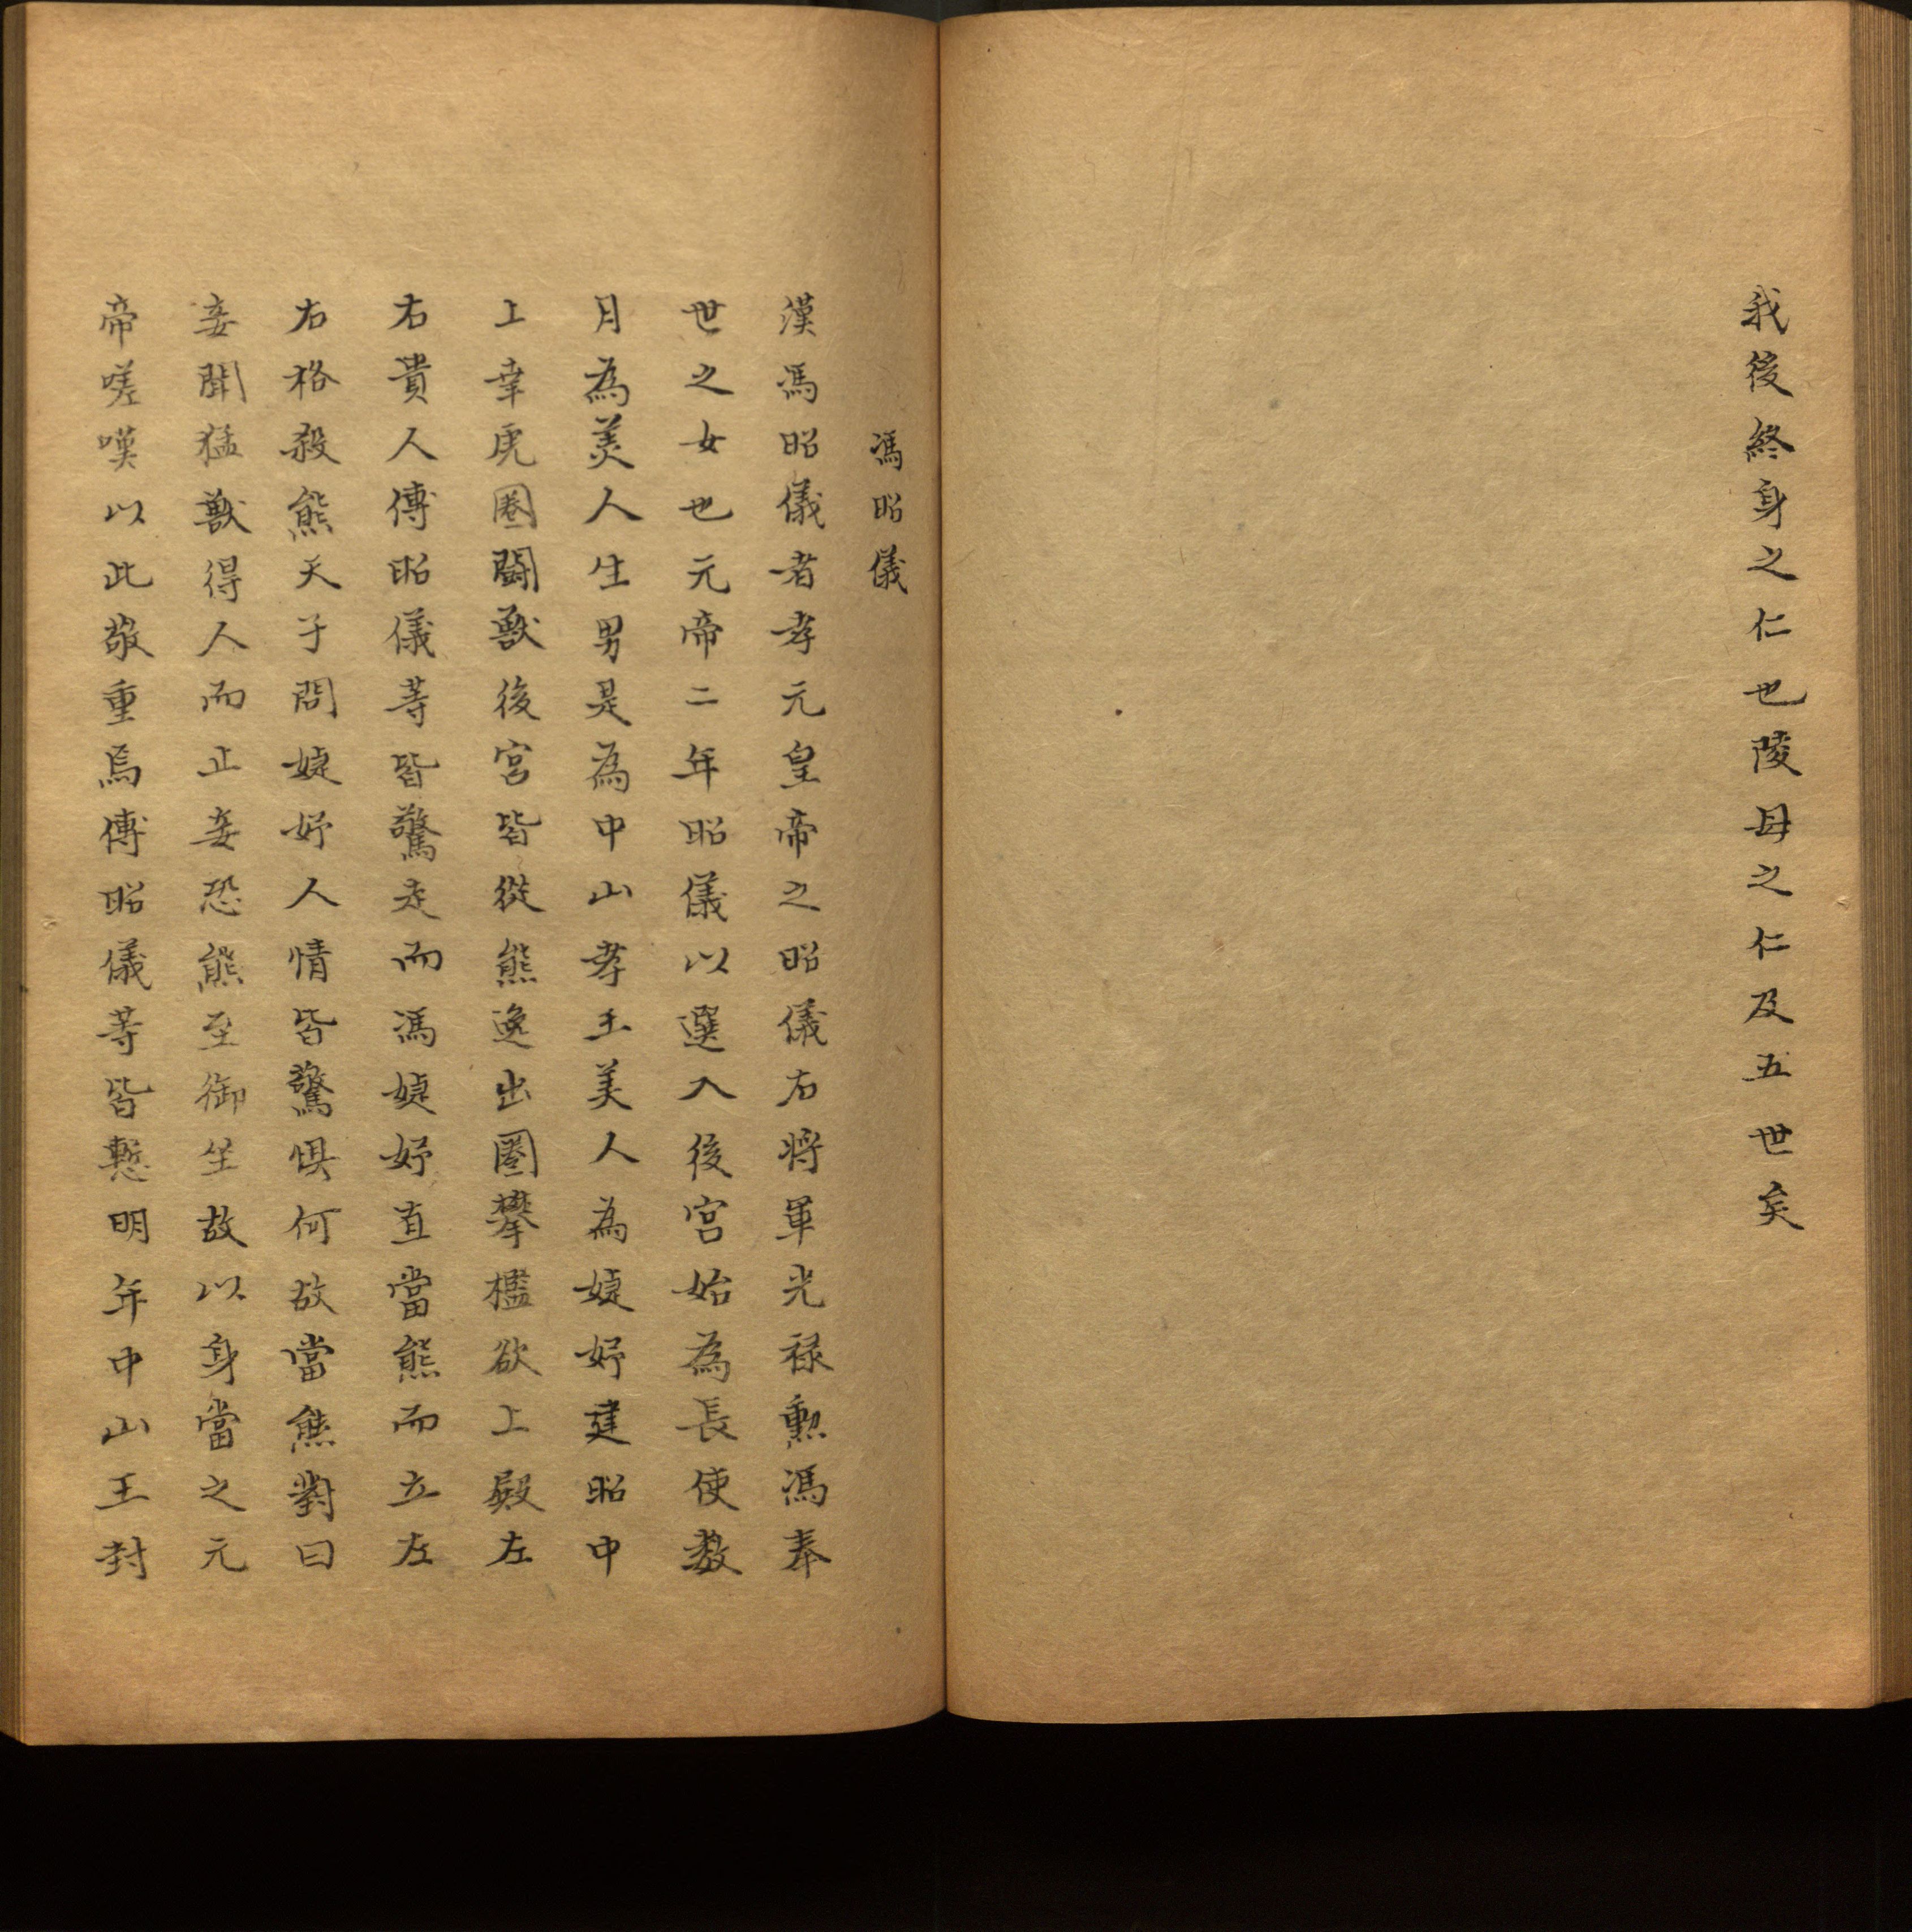 我後終身之仁也陵母之仁及五世矣
馮昭儀
漢馮昭儀者孝元皇帝之昭儀右將軍光祿勲馮奉
世之女也元帝二年昭儀以選入後宮始為長使數
月為美人生男是為中山孝王美人為婕妤建昭中
上幸虎圈鬪獸後宮皆從熊逸出圈攀檻欲上殿左
右貴人傅昭儀等皆驚走而馮婕妤直當熊而立左
右格殺熊天子問婕妤人情皆驚懼何故當熊對曰
妾聞猛獸得人而止妾恐熊至御坐故以身當之元
帝嗟嘆以此敬重焉傅昭儀等皆慙明年中山王封